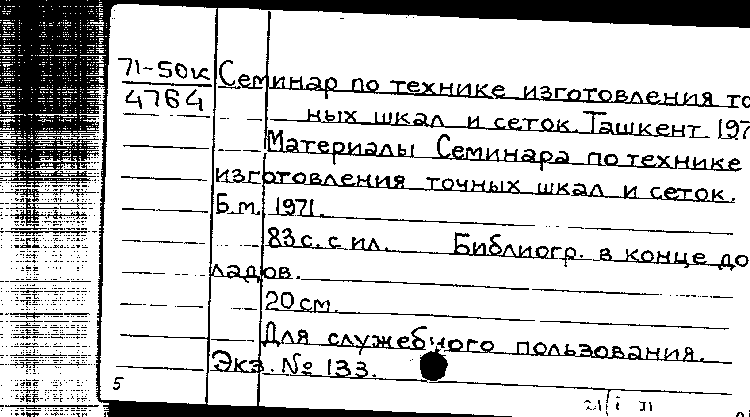 71-50к Семинар по технике изготовления то
4764 ных шкал и сеток. Ташкент. 197
Материалы Семинара по технике
изготовления точных шкал и сеток.
Б.м. 1971.
83 с. с ил. Библиогр. в конце до
ладов.
20 см.
Для служебного пользования.
Экз. № 133.
5